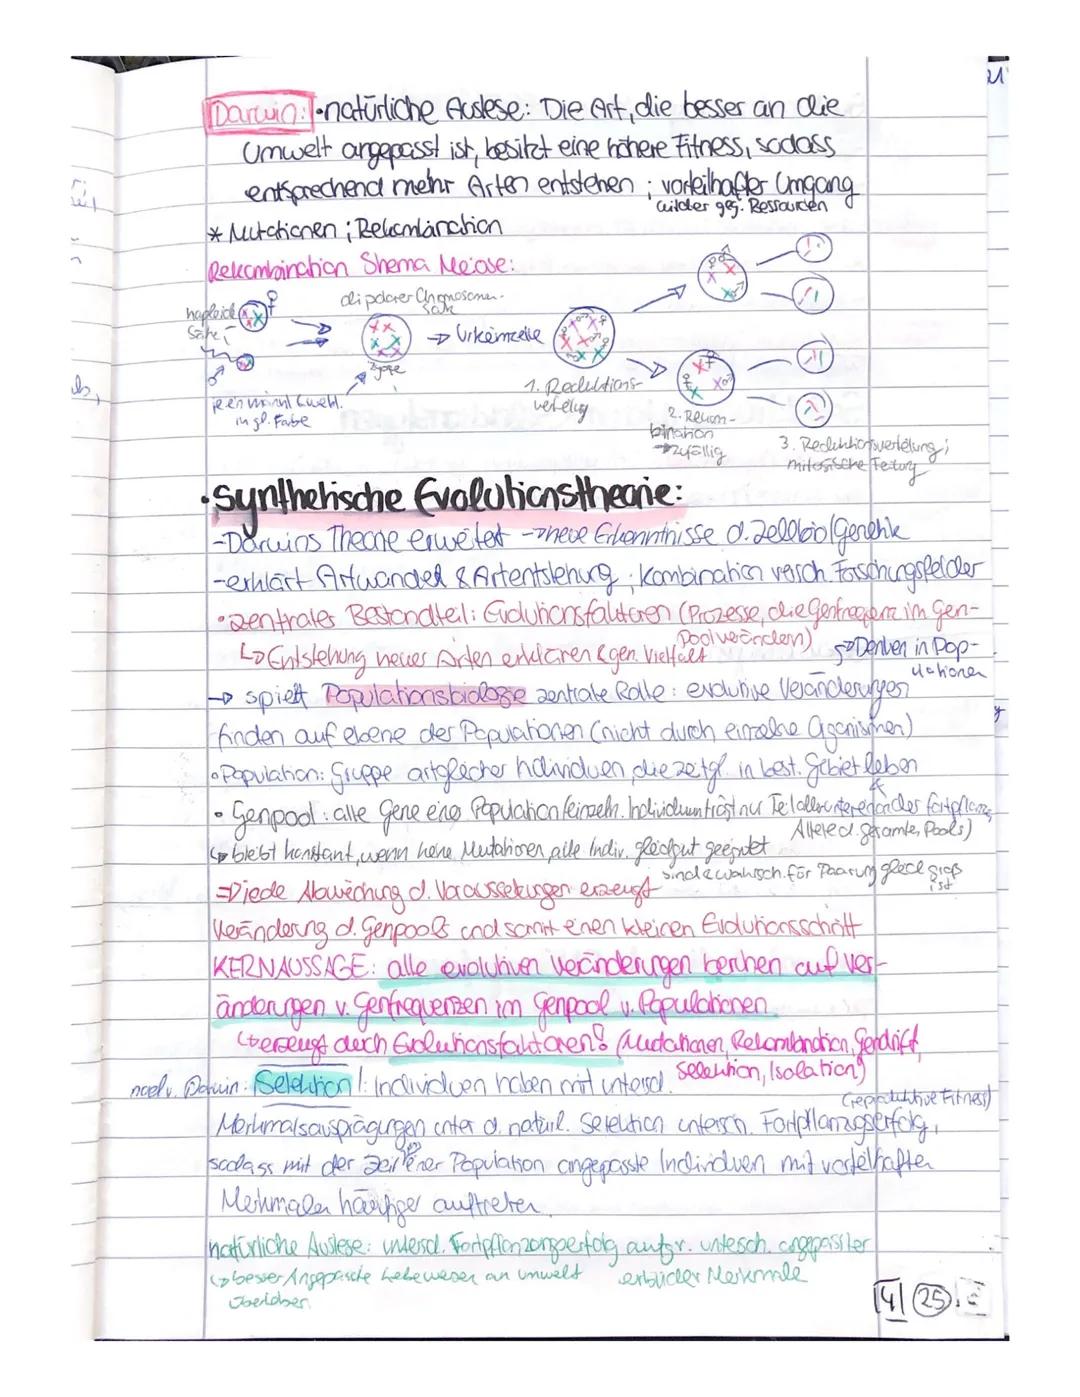 Darwin: • natürliche Auslese: Die Art, die besser an die
Umwelt angepasst ist, besitzt eine höhere Fitness, sodass
entsprechend mehr Arten entstehen ; vorteilhafter Umgang
geg. Ressourcen
* Mutationen ; Rekombination
Rekombination Shema Meiose:
haploide
Sätze
♀
♂
Zygote
→ Urkeimzelle
in gl. Farbe
1. Reduktions-
2. Rekom-
bination
→ zufällig
3. Reduktionsverteilung ;
mitotische Teilung
• Synthetische Evolutionstheorie:
- Darwins Theorie erweitert → neue Erkenntnisse d. Zellbio/Genetik
- erklärt Artwandel & Artentstehung . Kombination versch. Forschungsfelder
• zentraler Bestandteil: Evolutionsfaktoren (Prozesse, die Genfrequenz im Gen-
Pool verändern)
↳ Entstehung neuer Arten erklären & gen. Vielfalt
↳ Denken in Pop-
ulationen
→ spielt Populationsbiologie zentrale Rolle: evolutive Veränderungen
finden auf ebene der Populationen (nicht durch einzelne Organismen)
• Population: Gruppe artgleicher Individuen, die zeitgl. in best. Gebiet leben
• Genpool: alle Gene einer Population (einzeln. Individuum trägt nur Teil
Allele d. gesamten Pools)
↳ bleibt konstant, wenn keine Mutationen, alle Indiv. gleichgut geeignet
sind & wahrsch. für Paarung gleich groß
ist
⇒ jede Abweichung d. Voraussetzungen erzeugt
Veränderung d. Genpools und somit einen kleinen Evolutionsschritt
KERNAUSSAGE: alle evolutiven Veränderungen beruhen auf Ver-
änderungen v. Genfrequenzen im Genpool v. Populationen
↳ erzeugt durch Evolutionsfaktoren! (Mutationen, Rekombination, Gendrift,
Selektion, Isolation)
Darwin: Selektion!: Individuen haben mit untersd.
(reproduktive Fitness)
Merkmalsausprägungen unter d. natürl. Selektion untersch. Fortpflanzungserfolg,
sodass mit der Zeit in einer Population angepasste Individuen mit vorteilhaften
Merkmalen häufiger auftreten.
natürliche Auslese: untersd. Fortpflanzungserfolg aufgr. untersch. angepasster
erblicher Merkmale
↳ besser Angepasste Lebewesen an Umwelt
überleben
4 25